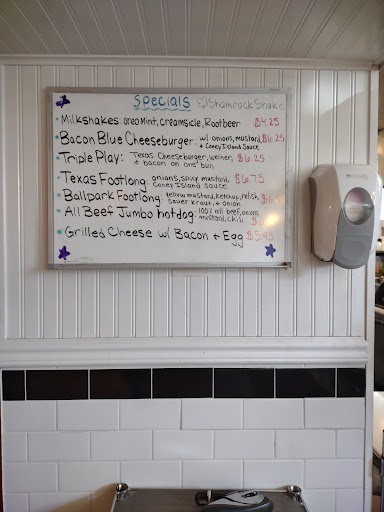 Specials Shamrock Shake
Milkshakes: Oreo Mint, creamsicle, Rootbeer $4.25
Bacon Blue Cheeseburger: w/ onions, mustard, $6.25
+ Coney Island Sauce
Triple Play: Texas Cheeseburger, weiner, $6.25
+ bacon on one bun
Texas Footlong: onions, spicy mustard, $6.75
Coney Island Sauce
Ballpark Footlong: yellow mustard, ketchup, relish
Sauer kraut, + onion
All Beef Jumbo hotdog: 100% all beef, onions,
mustard, chili
Grilled Cheese w/ Bacon + Egg $5.95